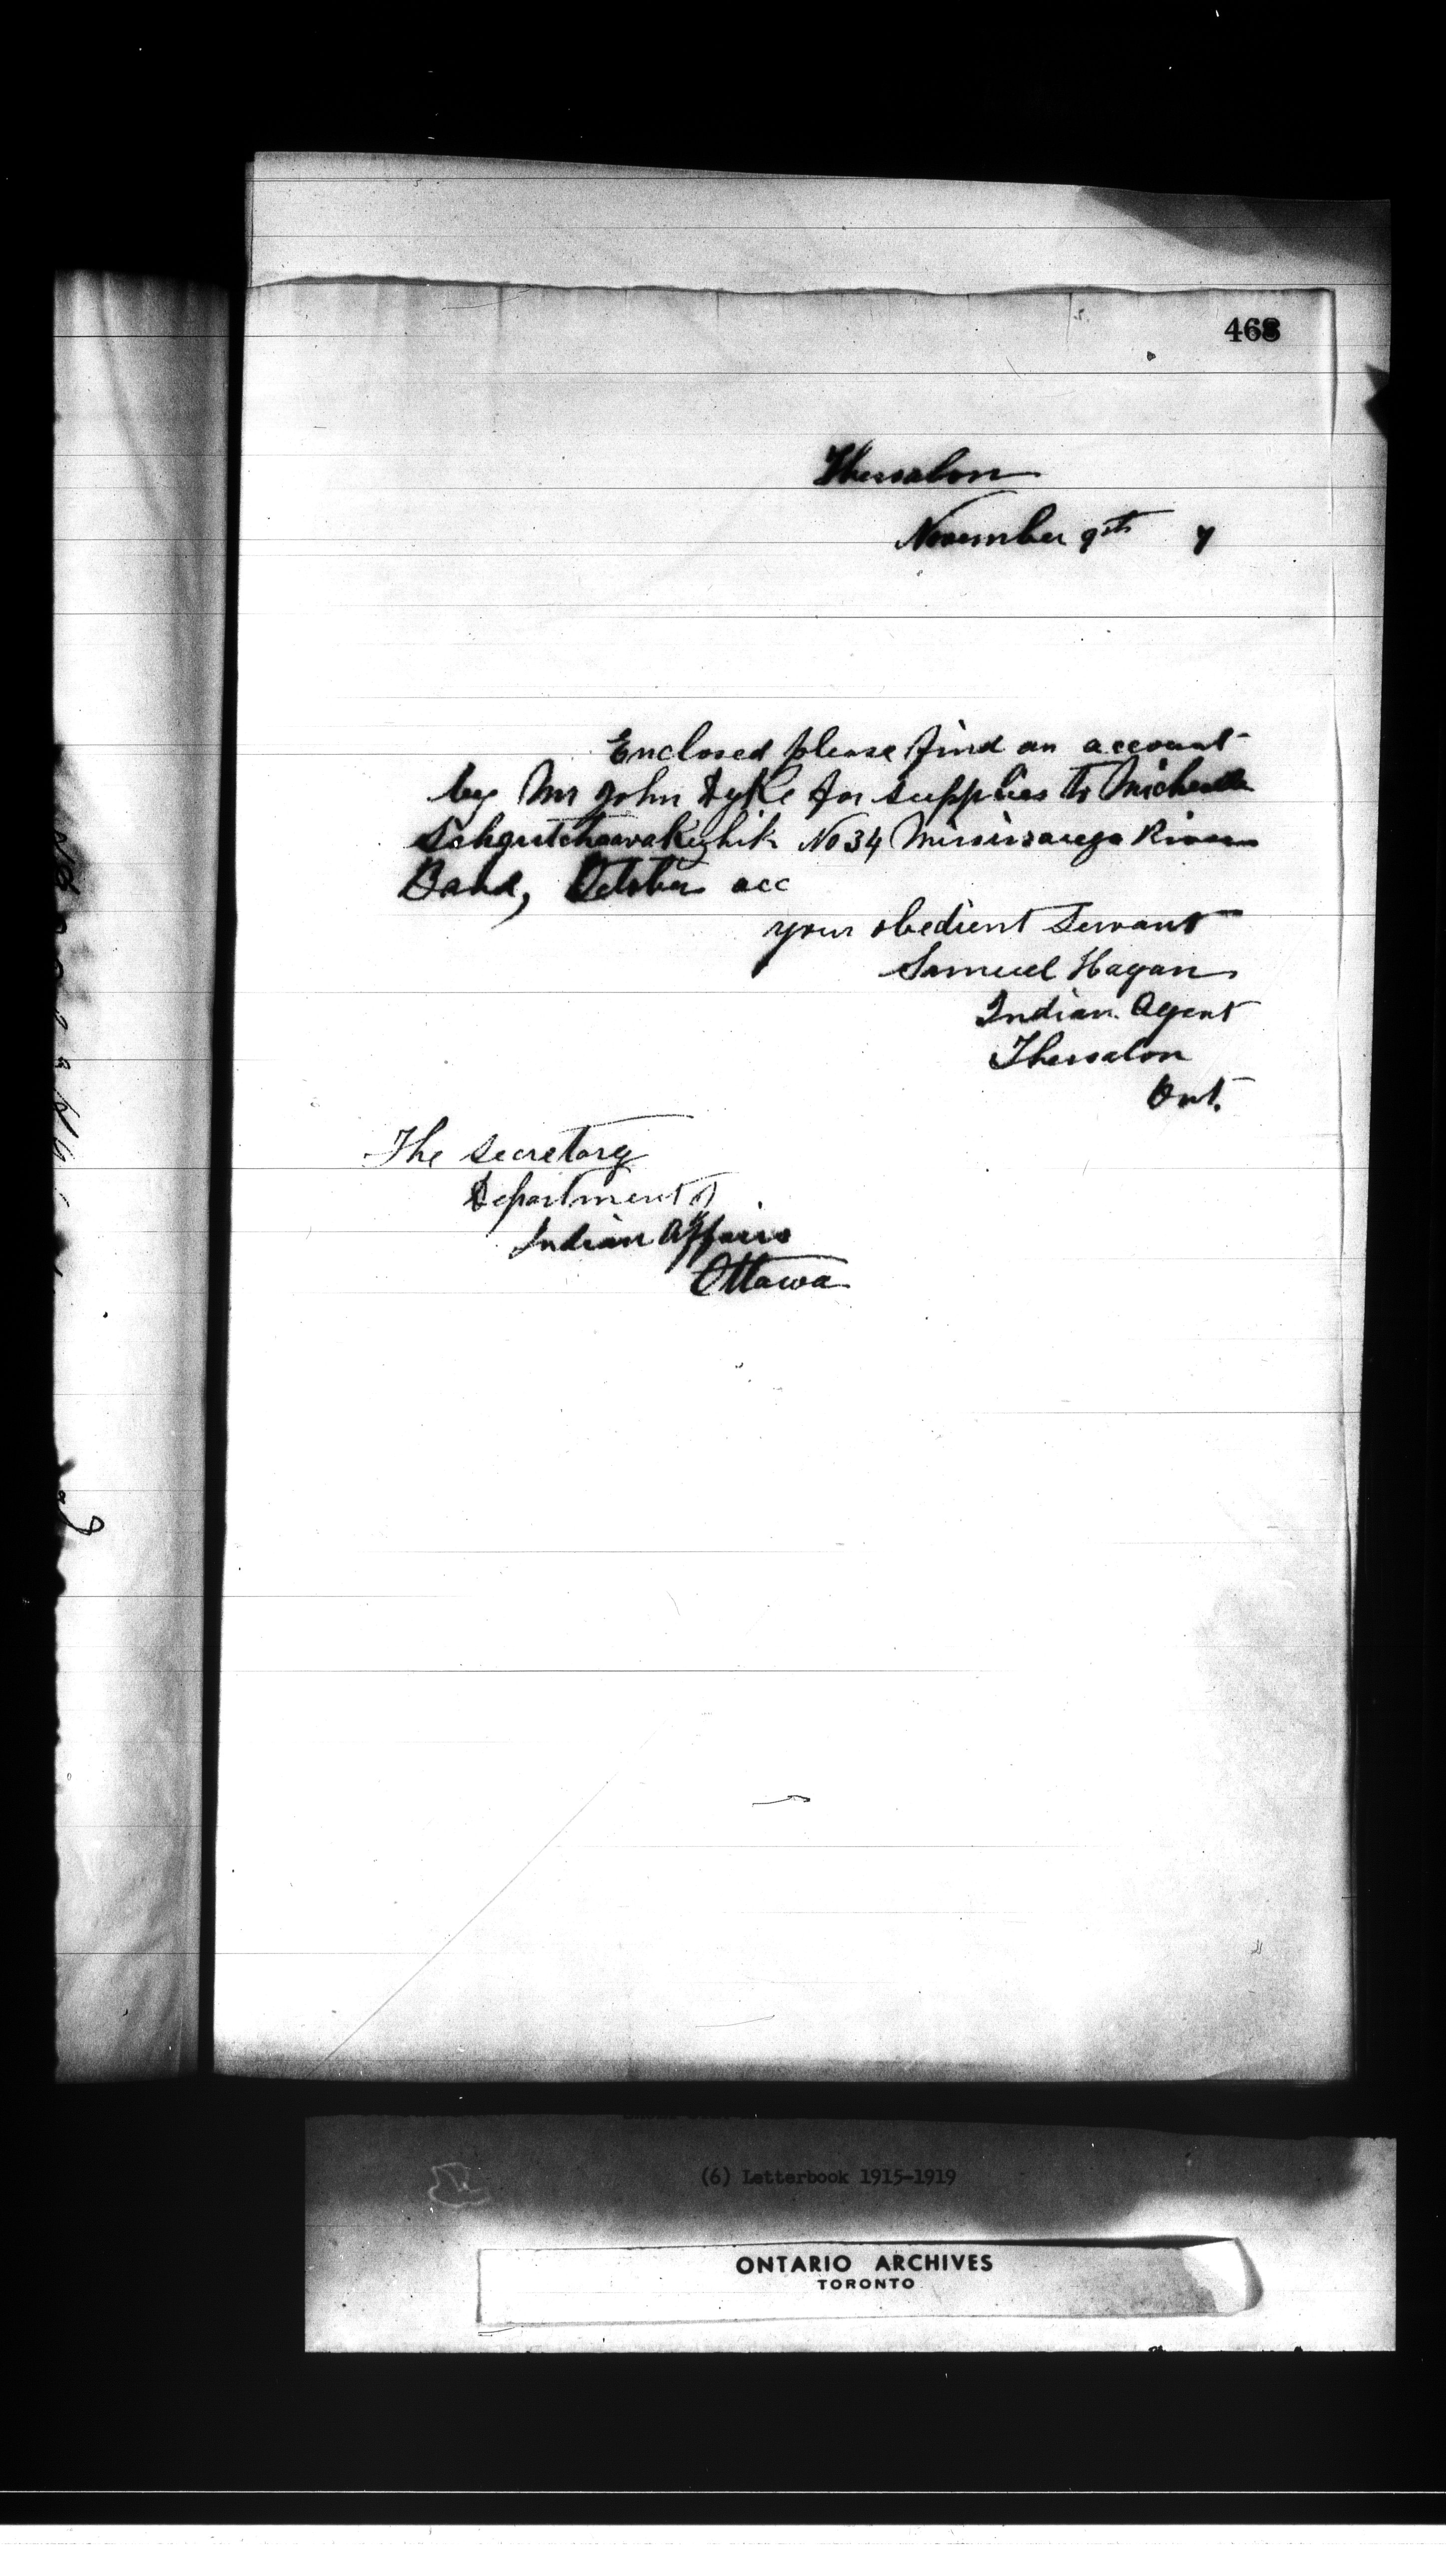 468
Thessalon
November 9th 7
Enclosed please find an account
by Mr John Dyke for supplies to Michelle
No 34 Mississauga River
Band, October acc
your obedient servant
Samuel Hagan
Indian Agent
Thessalon
Ont.
The Secretary
Department of
Indian Affairs
Ottawa
(6) Letterbook 1915-1919
ONTARIO ARCHIVES
TORONTO